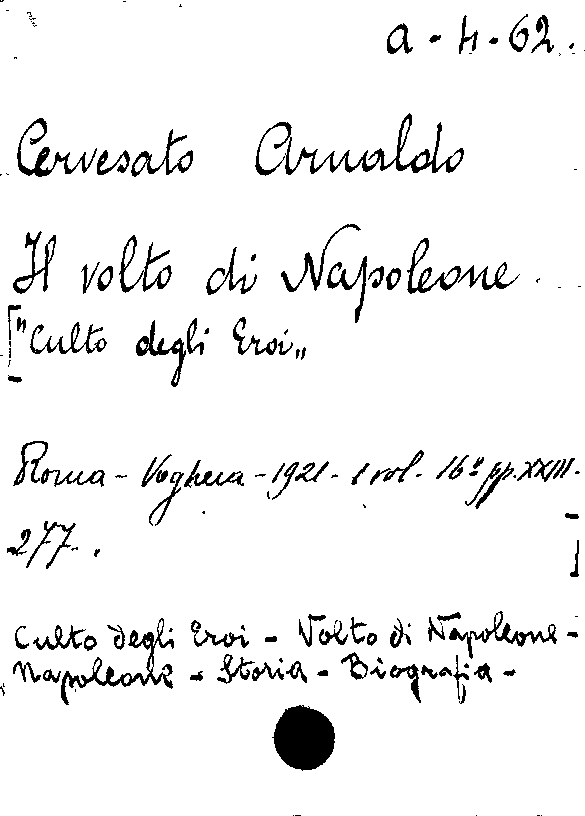 a-4-62.
Cervesato Arnaldo
Il volto di Napoleone.
["Culto degli Eroi„
Roma - Voghera - 1921 - 1 vol. 16º pp. XXIII-
277. ]
Culto degli Eroi - Volto di Napoleone -
Napoleone - Storia - Biografia -